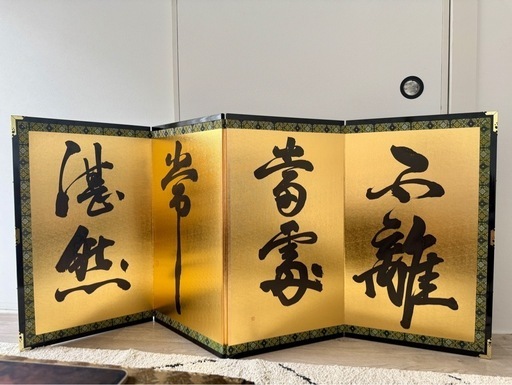 不離
當處
常
湛然